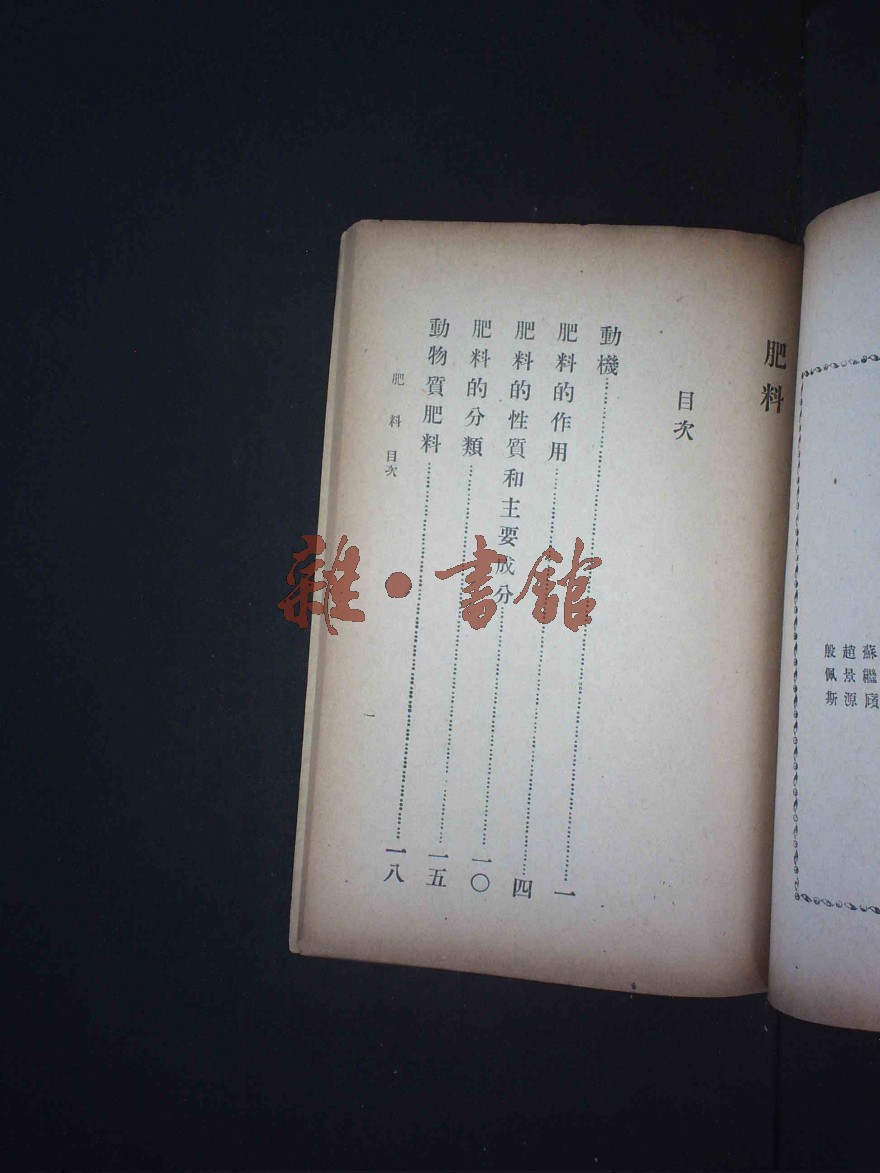 蘇繼廎
趙景源
殷佩斯
肥料
目次
動機……一
肥料的作用……四
肥料的性質和主要成分……一〇
肥料的分類……一五
動物質肥料……一八
肥料 目次
一
雜·書館